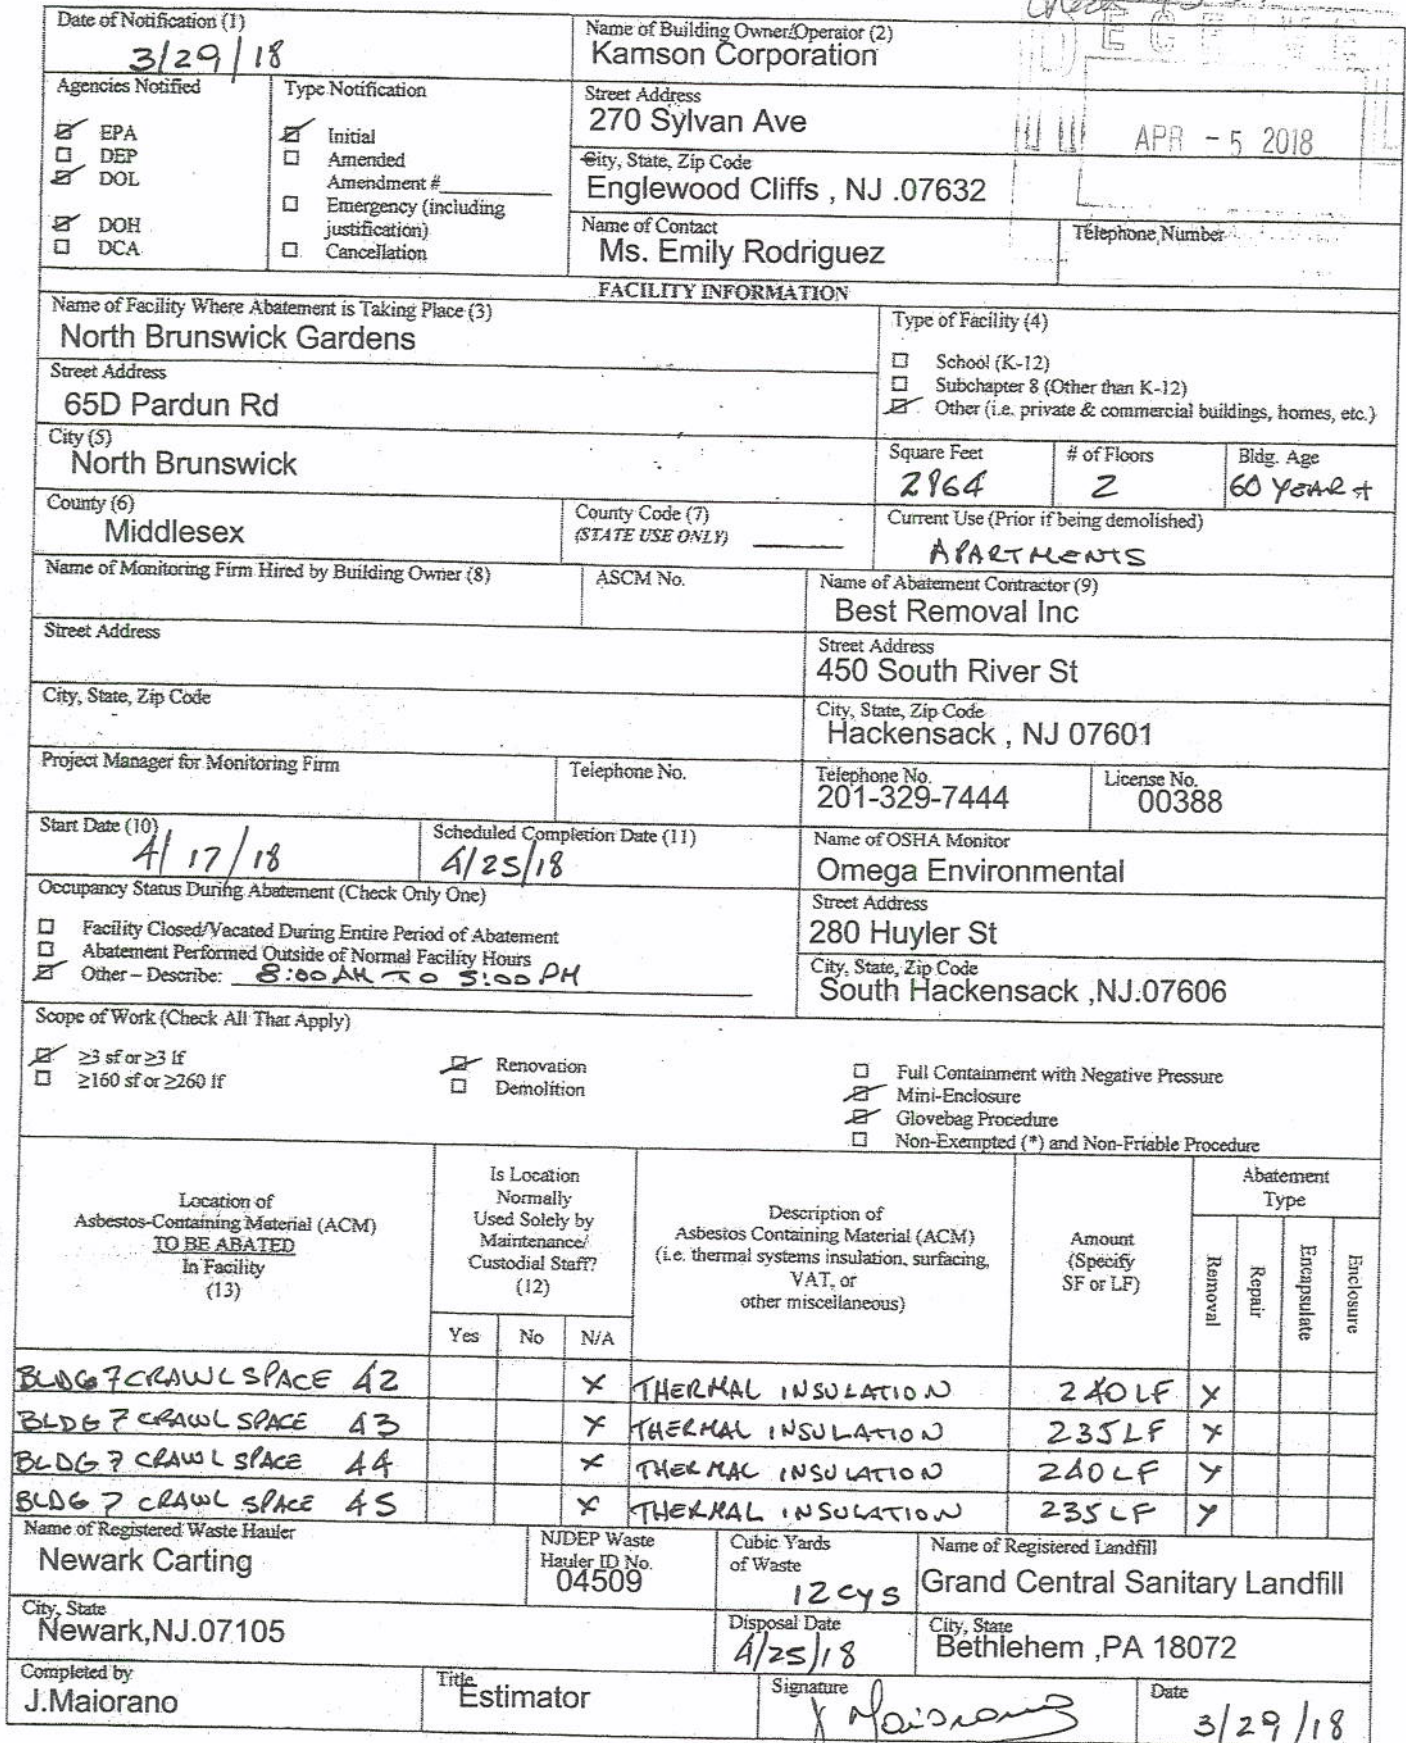 Date of Notification (1)
3/29/18
Name of Building Owner/Operator (2)
Kamson Corporation
Agencies Notified
EPA
DEP
DOL
DOH
DCA
Type Notification
Initial
Amended
Amendment #
Emergency (including
justification)
Cancellation
Street Address
270 Sylvan Ave
APR - 5 2018
City, State, Zip Code
Englewood Cliffs , NJ .07632
Name of Contact
Ms. Emily Rodriguez
Telephone Number
FACILITY INFORMATION
Name of Facility Where Abatement is Taking Place (3)
North Brunswick Gardens
Type of Facility (4)
School (K-12)
Subchapter 8 (Other than K-12)
Other (i.e. private & commercial buildings, homes, etc.)
Street Address
65D Pardun Rd
City (5)
North Brunswick
Square Feet
2964
# of Floors
2
Bldg. Age
60 YEAR +
County (6)
Middlesex
County Code (7)
(STATE USE ONLY)
Current Use (Prior if being demolished)
APARTMENTS
Name of Monitoring Firm Hired by Building Owner (8)
ASCM No.
Name of Abatement Contractor (9)
Best Removal Inc
Street Address
Street Address
450 South River St
City, State, Zip Code
City, State, Zip Code
Hackensack , NJ 07601
Project Manager for Monitoring Firm
Telephone No.
Telephone No.
201-329-7444
License No.
00388
Start Date (10)
4/17/18
Scheduled Completion Date (11)
4/25/18
Name of OSHA Monitor
Omega Environmental
Occupancy Status During Abatement (Check Only One)
Facility Closed/Vacated During Entire Period of Abatement
Abatement Performed Outside of Normal Facility Hours
Other – Describe: 8:00 AM TO 5:00 PM
Street Address
280 Huyler St
City, State, Zip Code
South Hackensack ,NJ.07606
Scope of Work (Check All That Apply)
≥3 sf or ≥3 lf
≥160 sf or ≥260 lf
Renovation
Demolition
Full Containment with Negative Pressure
Mini-Enclosure
Glovebag Procedure
Non-Exempted (*) and Non-Friable Procedure
Location of
Asbestos-Containing Material (ACM)
TO BE ABATED
In Facility
(13)
Is Location
Normally
Used Solely by
Maintenance/
Custodial Staff?
(12)
Yes No N/A
Description of
Asbestos Containing Material (ACM)
(i.e. thermal systems insulation, surfacing,
VAT, or
other miscellaneous)
Amount
(Specify
SF or LF)
Abatement
Type
Removal
Repair
Encapsulate
Enclosure
BLDG 7 CRAWL SPACE 42 X THERMAL INSULATION 240 LF X
BLDG 7 CRAWL SPACE 43 X THERMAL INSULATION 235 LF X
BLDG 7 CRAWL SPACE 44 X THERMAL INSULATION 240 LF X
BLDG 7 CRAWL SPACE 45 X THERMAL INSULATION 235 LF X
Name of Registered Waste Hauler
Newark Carting
NJDEP Waste
Hauler ID No.
04509
Cubic Yards
of Waste
12 CYS
Name of Registered Landfill
Grand Central Sanitary Landfill
City, State
Newark,NJ.07105
Disposal Date
4/25/18
City, State
Bethlehem ,PA 18072
Completed by
J.Maiorano
Title
Estimator
Signature
J Maiorano
Date
3/29/18